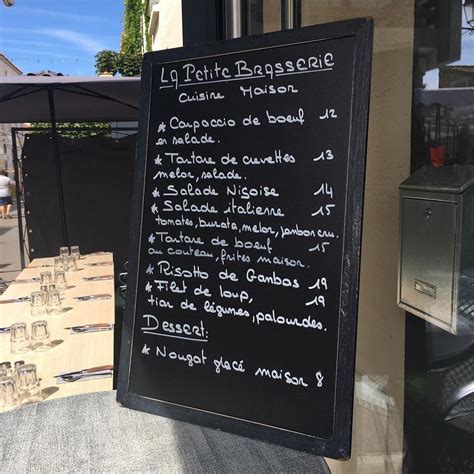 La Petite Brasserie
Cuisine Maison
* Carpaccio de boeuf 12
en salade.
* Tartare de crevettes 13
melon, salade.
* Salade Niçoise 14
* Salade italienne 15
tomates, burata, melon, jambon cru.
* Tartare de boeuf 15
au couteau, frites maison.
* Risotto de Gambas 19
* Filet de loup, 19
tian de légumes, palourdes.
Dessert:
* Nougat glacé maison 8